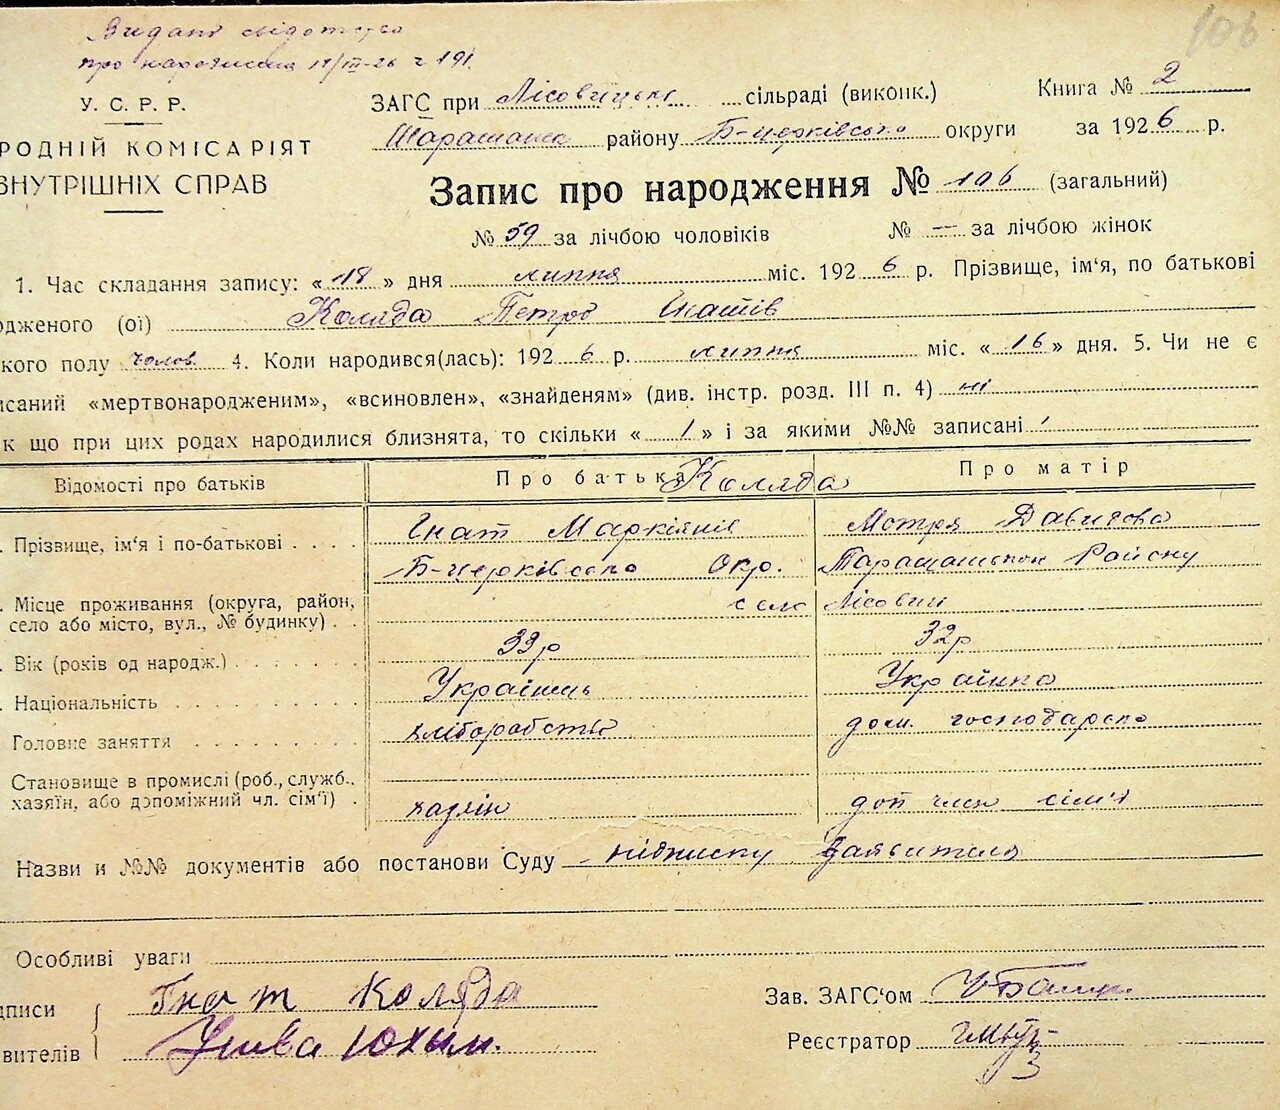 Видано свідотство
про народження 18/III-26 г 191.
106
У. С. Р. Р.
РОДНІЙ КОМІСАРІЯТ
ВНУТРІШНІХ СПРАВ
ЗАГС при Лісовицькі сільраді (виконк.)
Книга № 2
району Б-церківсько округи за 1926 р.
Запис про народження № 106 (загальний)
№ 59 за лічбою чоловіків № — за лічбою жінок
1. Час складання запису: « 18 » дня липня міс. 1926 р. Прізвище, ім'я, по батькові
одженого (ої) Коляда Петро Гнатів
кого полу чолов 4. Коли народився(лась): 1926 р. липня міс. « 16 » дня. 5. Чи не є
исаний «мертвонародженим», «всиновлен», «знайденям» (див. інстр. розд. III п. 4) ні
к що при цих родах народилися близнята, то скільки « / » і за якими №№ записані /
Відомості про батьків
Про батька Коляда Про матір
. Прізвище, ім'я і по-батькові . . . . Гнат Маркіянів Мотря Давидова
Б-церківсько Окр. Таращанськ Району
. Місце проживання (округа, район,
село або місто, вул., № будинку) . . село Лісович
. Вік (років од народж.) . . . . . . 33р 32р
. Національність . . . . . . . . . Українець Українка
Головне заняття . . . . . . . . хліборобство дом. господарство
Становище в промислі (роб., служб.,
хазяїн, або допоміжний чл. сім'ї) . хазяїн доп член сім'ї
Назви и №№ документів або постанови Суду підписку Заявителя
Особливі уваги
дписи
вителів
Гнат Коляда
Юхим.
Зав. ЗАГС'ом
Реєстратор